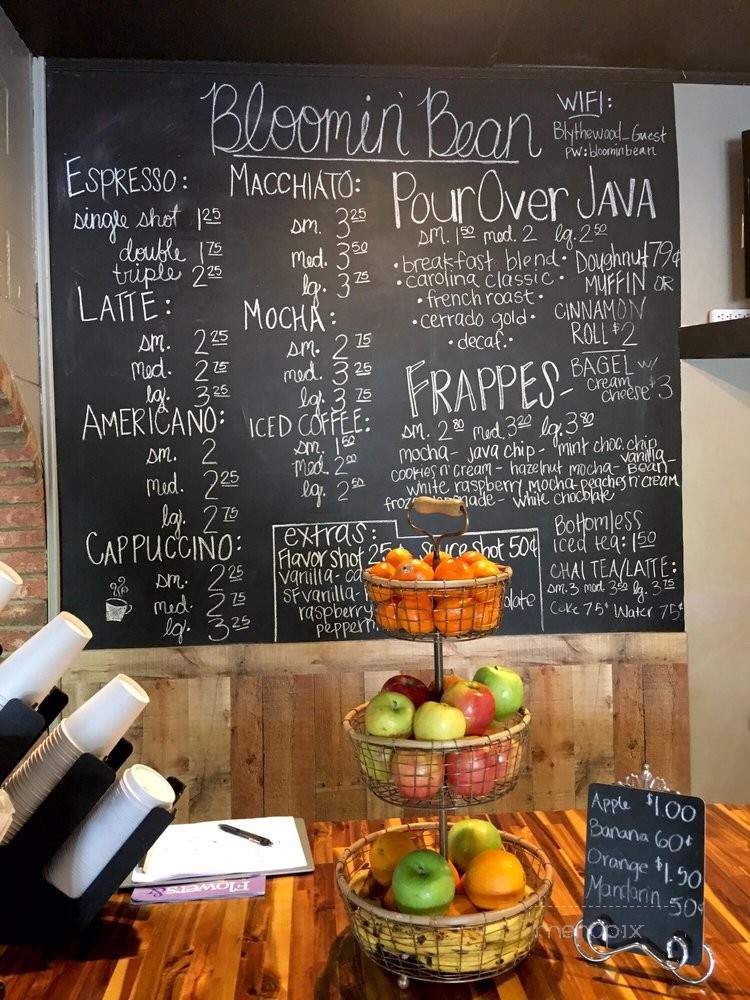 Bloomin' Bean
WIFI:
Blythewood_Guest
PW: bloominbean
ESPRESSO:
single shot 1 25
double 1 75
triple 2 25
LATTE:
sm. 2 25
med. 2 75
lg. 3 25
AMERICANO:
sm. 2
med. 2 25
lg. 2 75
CAPPUCCINO:
sm. 2 25
med. 2 75
lg. 3 25
MACCHIATO:
sm. 3 25
med. 3 50
lg. 3 75
MOCHA:
sm. 2 75
med. 3 25
lg. 3 75
ICED COFFEE:
sm. 1 50
med. 2 00
lg. 2 50
extras:
Flavor shot 25 sauce shot 50¢
vanilla-
SF vanilla-
raspberry
pepperm
Pour Over JAVA
sm. 1 50 med. 2 lg. 2 50
• breakfast blend •
• carolina classic •
• french roast •
• cerrado gold •
• decaf. •
Doughnut 79¢
MUFFIN OR
CINNAMON
ROLL $2
BAGEL w/
cream
cheese $3
FRAPPES-
sm. 2 80 med. 3 20 lg. 3 80
mocha- java chip- mint choc. chip
cookies n' cream- hazelnut mocha- vanilla Bean-
white raspberry mocha- peaches n' cream
white chocolate
Bottomless
iced tea: 1 50
CHAI TEA/LATTE:
sm. 3 med. 3 50 lg. 3 75
Coke 75¢ Water 75¢
Apple $1.00
Banana 60¢
Orange $1.50
Mandarin
50¢
Flowers
menupix